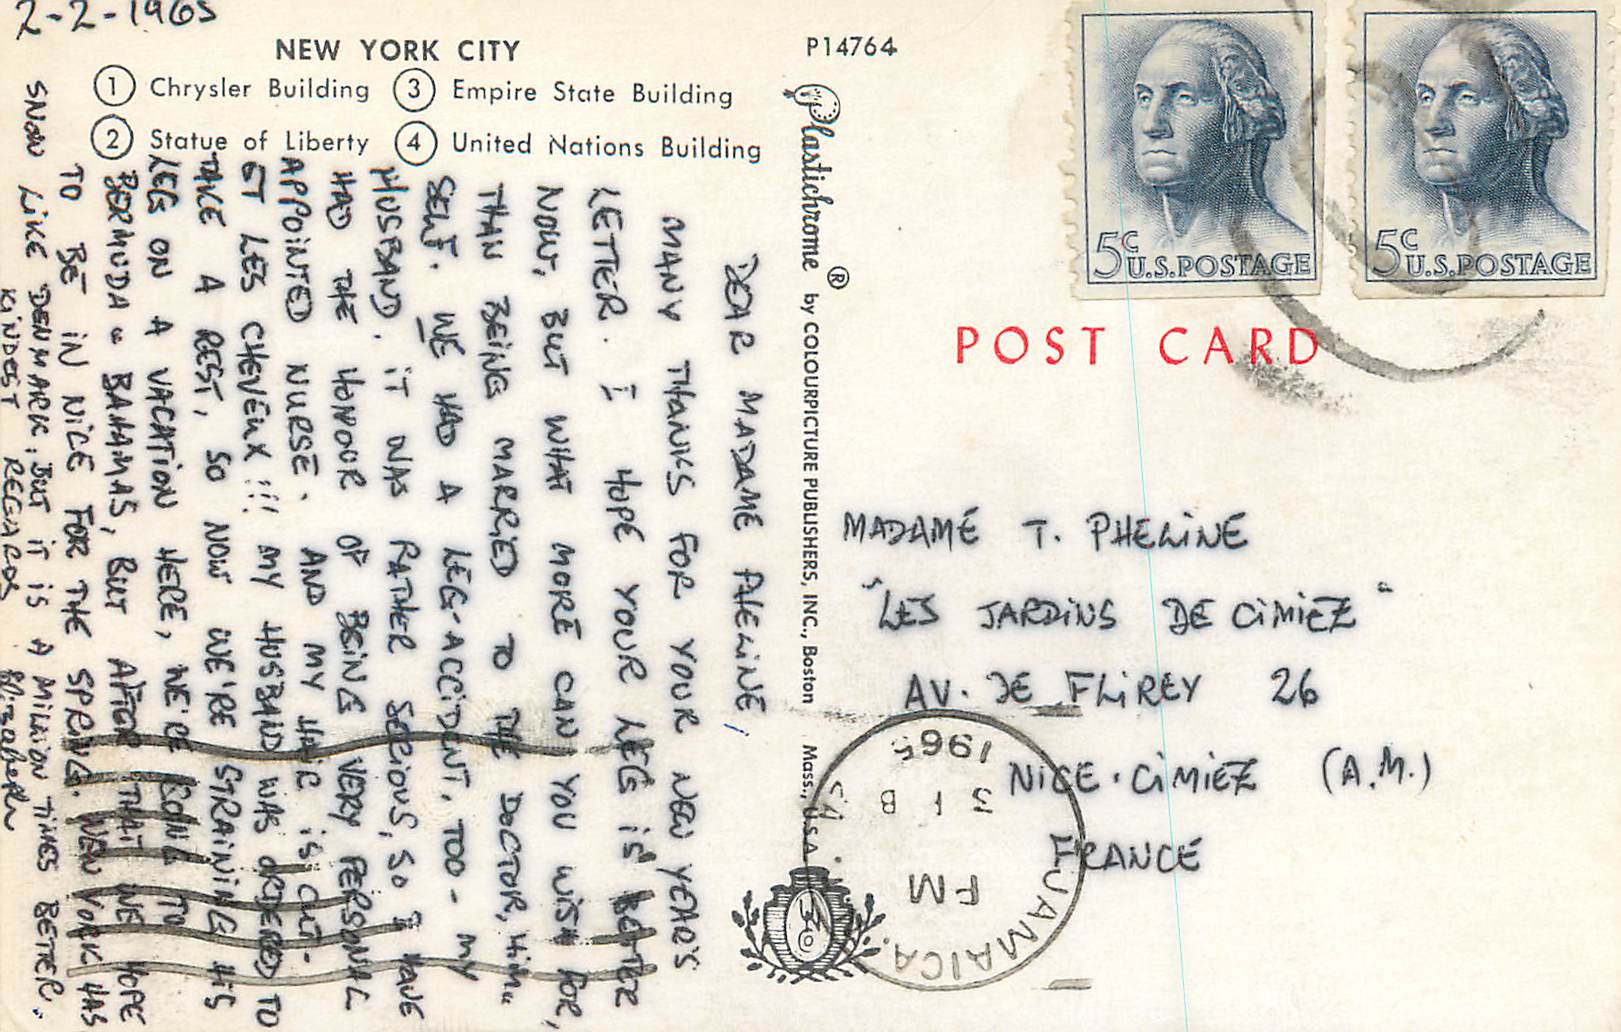 2-2-1965
NEW YORK CITY
① Chrysler Building ③ Empire State Building
② Statue of Liberty ④ United Nations Building
DEAR MADAME PHELINE,
MANY THANKS FOR YOUR NEW YEAR'S
LETTER. I HOPE YOUR LEG IS BETTER
NOW, BUT WHAT MORE CAN YOU WISH FOR,
THAN BEING MARRIED TO THE DOCTOR, HIM-
SELF. WE HAD A LEG-ACCIDENT, TOO - MY
HUSBAND. IT WAS RATHER SERIOUS, SO I HAVE
HAD THE HONOUR OF BEING VERY PERSONAL
APPOINTED NURSE. AND MY HAIR IS CUT-
ET LES CHEVEUX !!! MY HUSBAND WAS ORDERED TO
TAKE A REST, SO NOW WE'RE STRAINING HIS
LEG ON A VACATION HERE, WE'RE GOING TO
BERMUDA - BAHAMAS, BUT AFTER THAT WE HOPE
TO BE IN NICE FOR THE SPRING. NEW YORK HAS
SNOW LIKE DENMARK, BUT IT IS A MILLION TIMES BETTER.
KINDEST REGARDS Elizabeth
P14764
Plastichrome ® by COLOURPICTURE PUBLISHERS, INC., Boston Mass., U.S.A.
5c U.S.POSTAGE
5c U.S.POSTAGE
POST CARD
MADAME T. PHELINE
"LES JARDINS DE CIMIEZ"
AV. DE FLIREY 26
NICE. CIMIEZ (A.M.)
FRANCE
JAMAICA.
PM
1965